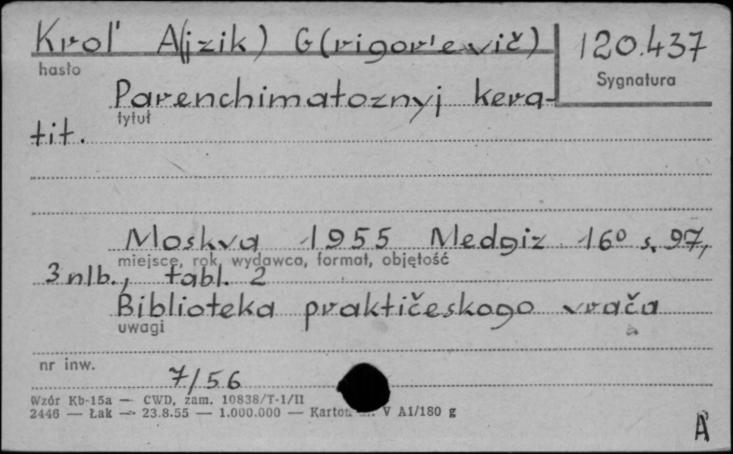 Krol' A(jzik) G(rigor'evič) 120.437
hasło Sygnatura
Parenchimatoznyj kera-
tytuł
tit.
Moskva 1955 Medgiz 16° s. 97,
miejsce, rok, wydawca, format, objętość
3 nlb., tabl. 2
Biblioteka praktičeskogo vrača
uwagi
nr inw.
7/56
Wzór Kb-15a — CWD, zam. 10838/T-1/II
2446 — Łak — 23.8.55 — 1.000.000 — Karton V A1/180 g
A